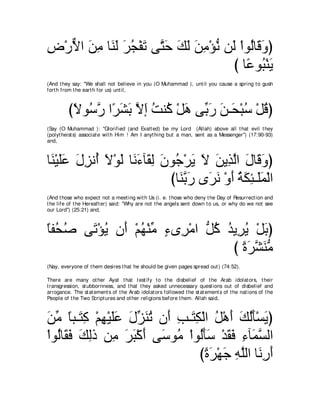 (وَقَالُواْ لَن نُّؤْمِنَ لَكَ حَتَّى تَفْجُرَ لَنَا مِنَ الاٌّرْضِ
يَنْبُوعًا )
(And they say: "We shall not believe in you (O Muhammad ), until you cause a spring to gush
forth from the earth for us) until,
(قُلْ سُبْحَـنَ رَبِّى هَلْ كُنتُ إِلاَّ بَشَرًا رَّسُولاً)
(Say (O Muhammad ): "Glorified (and Exalted) be my Lord (Allah) above all that evil they
(polytheists) associate with Him ! Am I anything but a man, sent as a Messenger") (17:90-93)
and,
(وَقَالَ الَّذِينَ لاَ يَرْجُونَ لِقَآءَنَا لَوْلاَ أُنزِلَ عَلَيْنَا
الْمَلَـئِكَةُ أَوْ نَرَى رَبَّنَا)
(And those who expect not a meeting with Us (i.e. those who deny the Day of Resurrection and
the life of the Hereafter) said: "Why are not the angels sent down to us, or why do we not see
our Lord") (25:21) and,
(بَلْ يُرِيدُ كُلُّ امْرِىءٍ مِّنْهُمْ أَن يُؤْتَى صُحُفاً
مُّنَشَّرَةً )
(Nay, everyone of them desires that he should be given pages spread out) (74:52).
There are many other Ayat that testify to the disbelief of the Arab idolators, their
transgression, stubbornness, and that they asked unnecessary questions out of disbelief and
arrogance. The statements of the Arab idolators followed the statements of the nations of the
People of the Two Scriptures and other religions before them. Allah said,
(يَسْأَلُكَ أَهْلُ الْكِتَـبِ أَن تُنَزِّلَ عَلَيْهِمْ كِتَـباً مِّنَ
السَّمَآءِ فَقَدْ سَأَلُواْ مُوسَى أَكْبَرَ مِن ذلِكَ فَقَالُواْ
أَرِنَا اللَّهِ جَهْرَةً)